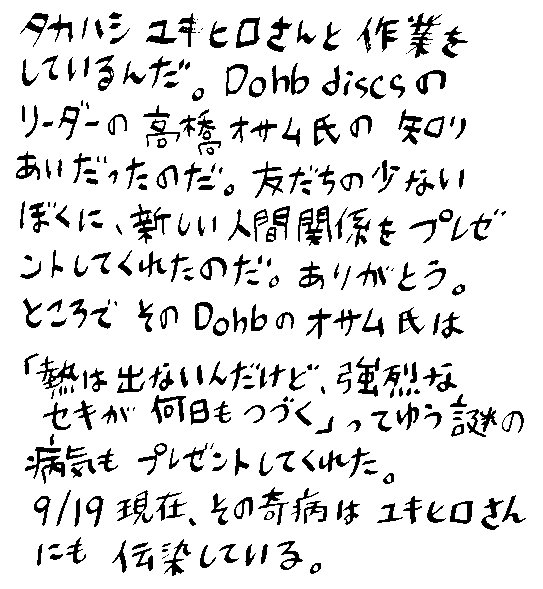 タカハシ ユキヒロさんと 作業を
しているんだ。Dohb discsの
リーダーの 高橋オサム氏の 知り
あいだったのだ。友だちの少ない
ぼくに、新しい人間関係を プレゼ
ントしてくれたのだ。ありがとう。
ところで そのDohbのオサム氏は
「熱は出ないんだけど、強烈な
セキが 何日もつづく」ってゆう謎の
病気も プレゼントしてくれた。
9/19 現在、その奇病は ユキヒロさん
にも 伝染している。